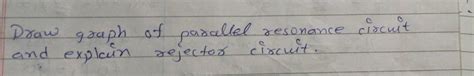 Draw graph of parallel resonance circuit
and explain rejector circuit.